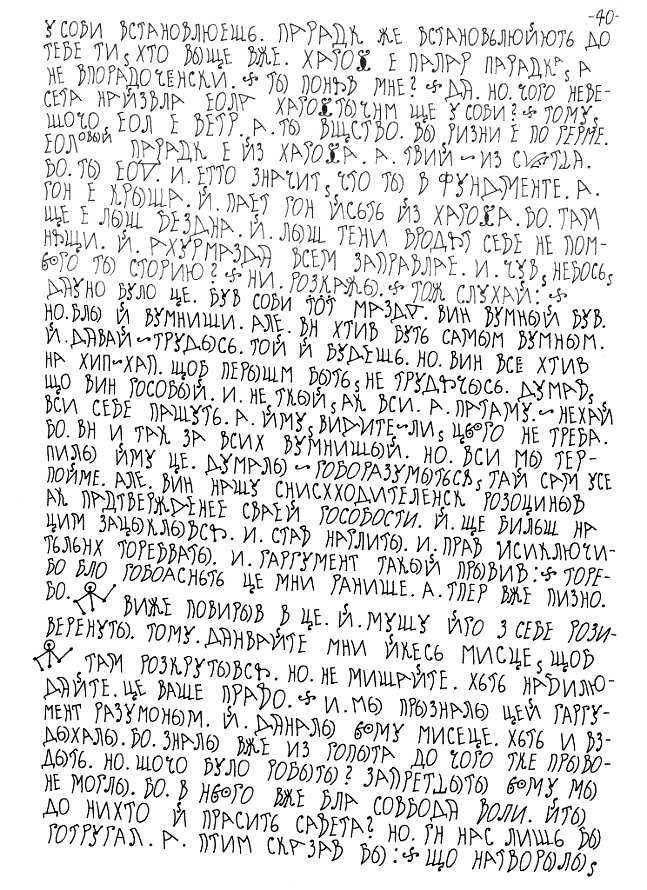 -40-
У СОБИ ВСТАНОВЛЮЕШЬ. ПАРАДК ЖЕ ВСТАНОВЬЛЮЙЮТЬ ДО
ТЕБЕ ТИ, ХТО ВЫЩЕ ВЖЕ. Е ПАЛАР ПАРАДКА, А
НЕ ВПОРАДОЧЕНСКИ. ТЫ ПОНЯВ МНЕ? ДА. НО. ЧОГО НЕВЕ-
СЕТА НАЙЗВЛА ЩЕ У СОБИ? ТОМУ,
ЩОЧО, ЕОЛ Е ВЕТР. А. ТЫ ВЩСТВО. ВЫ РИЗНИ Е ПО ГЕРМЕ.
ЕОЛОВЫЙ ПАРАДК Е ЙЗ А. ТВИЙ ~ ИЗ
БО. ТЫ И. ЕТТО ЗНАЧИТ, ЧТО ТЫ В ФУНДАМЕНТЕ. А.
ГОН Е КРЫША. Й. ПАЕТ ГОН ЙСЬТЬ ЙЗ БО. ТАМ
ЩЕ Е ЛЫШ БЕЗДНА. Й. ЛЫШ ТЕНИ БРОДЯТ СЕБЕ НЕ ПОМ-
НЯЩИ. Й. АХУРМАЗДА ВСЕМ ЗАПРАВЛАЕ. И. ЧУВ, НЕБОСЬ,
ТЫ СТОРИЮ? НИ. РОЗКАЖЫ. ТОЖ СЛУХАЙ:
ДАУНО БУЛО ЦЕ. БУВ СОБИ ТОТ ВИН ВУМНЫЙ БУВ.
НО. БЛЫ Й ВУМНИШИ. АЛЕ. ВН ХТИВ БУТЬ САМЫМ ВУМНЫМ.
Й. ДАВАЙ ~ ТРУДЫСЬ. ТОЙ Й БУДЕШЬ. НО. ВИН ВСЕ ХТИВ
НА ХИП~ХАП. ЩОБ ПЕРЫШМ БЫТЬ, НЕ ТРУДЯЧЫСЬ. ДУМАВ,
ЩО ВИН ГОСОБЫЙ. И. НЕ ТКЫЙ, АК ВСИ. А. ПАТАМУ. ~ НЕХАЙ
ВСИ СЕБЕ ПАШУТЬ. А. ЙМУ, ВИДИТЕ~ЛИ, НЕ ТРЕБА.
БО. ВН И ТАК ЗА ВСИХ ВУМНИЩЫЙ. НО. ВСИ МЫ ТЕР-
ПИЛЫ ЙМУ ЦЕ. ДУМАЛЫ ~ ГОБОРАЗУМЫТЬСЯ, ТАЙ САМ УСЕ
ПОЙМЕ. АЛЕ. ВИН НАШУ СНИСХХОДИТЕЛЕНСК РОЗОЦИНЫВ
АК ПАДТВЕРЖДЕНЕЕ СВАЕЙ ГОСОБОСТИ. Й. ЩЕ БИЛЬШ НА
ЦИМ ЗАЦЫКЛЫВСЯ. И. СТАВ НАГЛИТЫ. И. ПРАВ ИСИКЛЮЧИ-
ТЬЛЬНХ ТОРЕБВАТЫ. И. ГАРГУМЕНТ ТАКЫЙ ПРЫВИВ: ТОРЕ-
БО БЛО ГОБОАСНЬТЬ ЦЕ МНИ РАНИШЕ. А. ТПЕР ВЖЕ ПИЗНО.
БО. ВИЖЕ ПОВИРЫВ В ЦЕ. Й. МУШУ ЙГО З СЕБЕ РОЗИ-
ВЕРЕНУТЫ. ТОМУ. ДАНВАЙТЕ МНИ ЙКЕСЬ МИСЦЕ, ЩОБ
ТАМ РОЗКРУТЫВСЯ. НО. НЕ МИШАЙТЕ. ХЬТЬ НАДИЛЮ-
ДАЙТЕ. ЦЕ ВАШЕ ПРАВО. И. МЫ ПРЫЗНАЛЫ ЦЕЙ ГАРГУ-
МЕНТ РАЗУМОНЫМ. Й. ДАНАЛЫ МИСЕЦЕ. ХЬТЬ И ВЗ-
ДЫХАЛЫ. БО. ЗНАЛЫ ВЖЕ ИЗ ГОПЫТА ДО ЧОГО ТКЕ ПРЫВО-
ДЫТЬ. НО. ЩОЧО БУЛО РОБЫТЫ? ЗАПРЕТЦЫТЫ МЫ
НЕ МОГЛЫ. БО. В ВЖЕ БЛА СОВБОДА ВОЛИ. ЙТЫ
ДО НИХТО Й ПРАСИТЬ САВЕТА? НО. ГН НАС ЛИШЬ БЫ
ГОТРУГАЛ. А. ПТИМ СКАЗАВ БЫ: ЩО НАТВОРЫЛЫ,